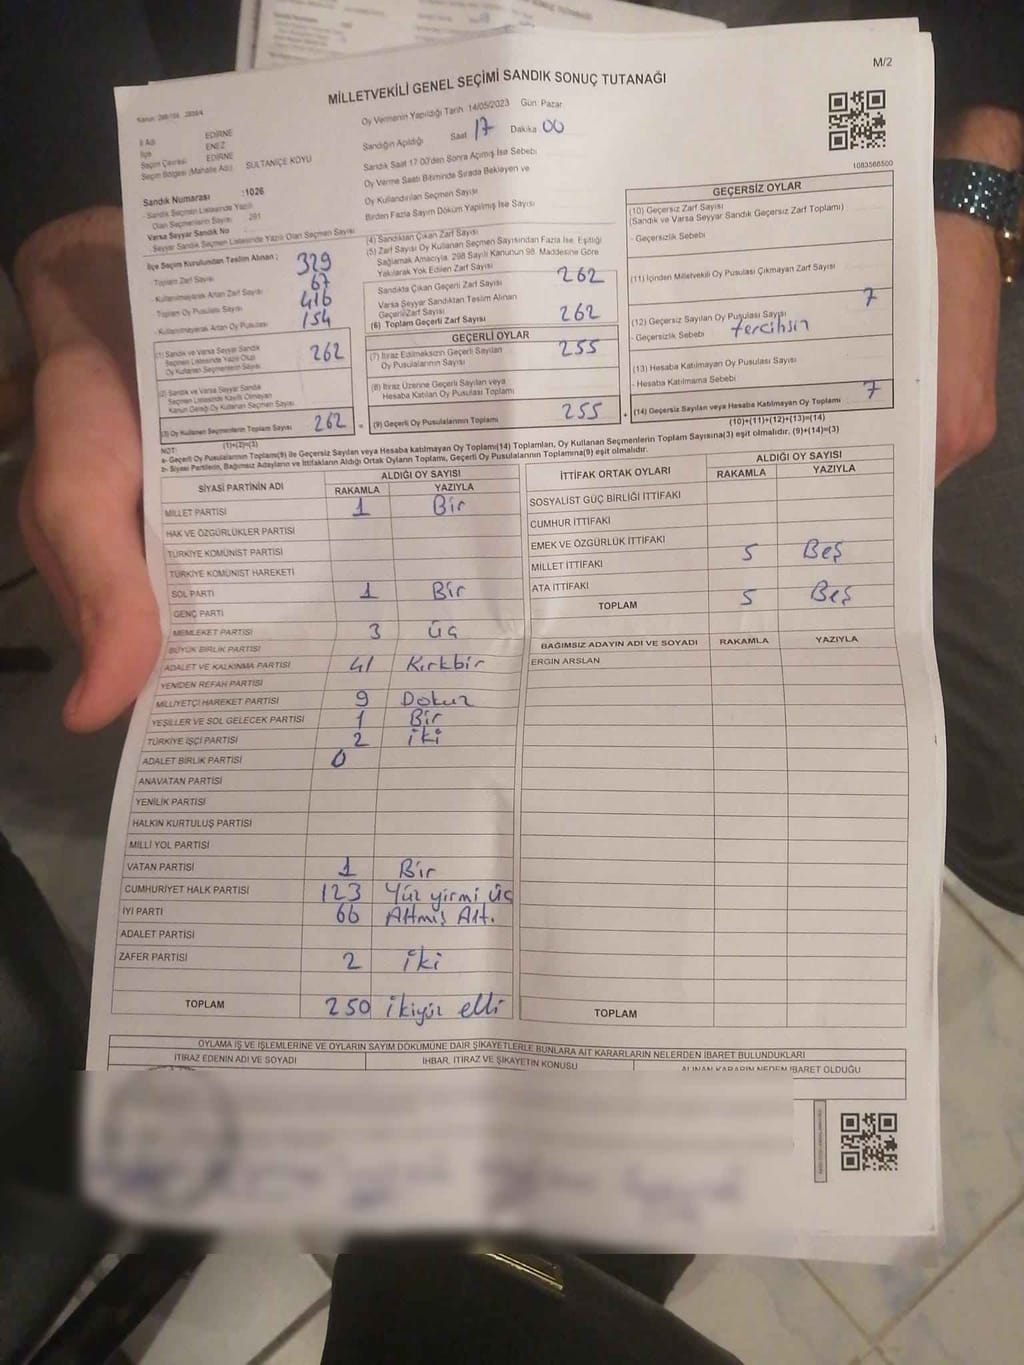 M/2
MİLLETVEKİLİ GENEL SEÇİMİ SANDIK SONUÇ TUTANAĞI
1083566500
İl Adı EDİRNE
İlçe ENEZ
Seçim Çevresi EDİRNE
Seçim Bölgesi (Mahalle Adı) SULTANİÇE KÖYÜ
Sandık Numarası :1026
- Sandık Seçmen Listesinde Yazılı
Olan Seçmenlerin Sayısı 281
Varsa Seyyar Sandık No
Seyyar Sandık Seçmen Listesinde Yazılı Olan Seçmen Sayısı
Oy Vermenin Yapıldığı Tarih 14/05/2023 Gün Pazar
Sandığın Açıldığı Saat 17 Dakika 00
Sandık Saat 17:00'den Sonra Açılmış İse Sebebi
Oy Verme Saati Bitiminde Sırada Bekleyen ve
Oy Kullandırılan Seçmen Sayısı
Birden Fazla Sayım Döküm Yapılmış İse Sayısı
İlçe Seçim Kurulundan Teslim Alınan ;
- Toplam Zarf Sayısı 329
- Kullanılmayarak Artan Zarf Sayısı 67
Toplam Oy Pusulası Sayısı 416
- Kullanılmayarak Artan Oy Pusulası 154
(1) Sandık ve Varsa Seyyar Sandık
Seçmen Listesinde Yazılı Olup
Oy Kullanan Seçmenlerin Sayısı 262
(2) Sandık ve Varsa Seyyar Sandık
Seçmen Listesinde Kayıtlı Olmayan
Kanun Gereği Oy Kullanan Seçmen Sayısı
(3) Oy Kullanan Seçmenlerin Toplam Sayısı 262 =
(1)+(2)=(3)
(4) Sandıktan Çıkan Zarf Sayısı
(5) Zarf Sayısı Oy Kullanan Seçmen Sayısından Fazla İse, Eşitliği
Sağlamak Amacıyla, 298 Sayılı Kanunun 98. Maddesine Göre
Yakılarak Yok Edilen Zarf Sayısı
Sandıkta Çıkan Geçerli Zarf Sayısı 262
Varsa Seyyar Sandıktan Teslim Alınan
Geçerli Zarf Sayısı
(6) Toplam Geçerli Zarf Sayısı 262
GEÇERLİ OYLAR
(7) İtiraz Edilmeksizin Geçerli Sayılan
Oy Pusulalarının Sayısı 255
(8) İtiraz Üzerine Geçerli Sayılan veya
Hesaba Katılan Oy Pusulası Toplamı
(9) Geçerli Oy Pusulalarının Toplamı 255 +
GEÇERSİZ OYLAR
(10) Geçersiz Zarf Sayısı
(Sandık ve Varsa Seyyar Sandık Geçersiz Zarf Toplamı)
- Geçersizlik Sebebi
(11) İçinden Milletvekili Oy Pusulası Çıkmayan Zarf Sayısı
(12) Geçersiz Sayılan Oy Pusulası Sayısı 7
- Geçersizlik Sebebi tercihsin
(13) Hesaba Katılmayan Oy Pusulası Sayısı
- Hesaba Katılmama Sebebi
(14) Geçersiz Sayılan veya Hesaba Katılmayan Oy Toplamı 7
(10)+(11)+(12)+(13)=(14)
NOT:
a- Geçerli Oy Pusulalarının Toplamı(9) ile Geçersiz Sayılan veya Hesaba katılmayan Oy Toplamı(14) Toplamları, Oy Kullanan Seçmenlerin Toplam Sayısına(3) eşit olmalıdır. (9)+(14)=(3)
b- Siyasi Partilerin, Bağımsız Adayların ve İttifakların Aldığı Ortak Oyların Toplamı, Geçerli Oy Pusulalarının Toplamına(9) eşit olmalıdır.
SİYASİ PARTİNİN ADI ALDIĞI OY SAYISI
RAKAMLA YAZIYLA
MİLLET PARTİSİ 1 Bir
HAK VE ÖZGÜRLÜKLER PARTİSİ
TÜRKİYE KOMÜNİST PARTİSİ
TÜRKİYE KOMÜNİST HAREKETİ
SOL PARTİ 1 Bir
GENÇ PARTİ
MEMLEKET PARTİSİ 3 üç
BÜYÜK BİRLİK PARTİSİ
ADALET VE KALKINMA PARTİSİ 41 Kırkbir
YENİDEN REFAH PARTİSİ
MİLLİYETÇİ HAREKET PARTİSİ 9 Dokuz
YEŞİLLER VE SOL GELECEK PARTİSİ 1 Bir
TÜRKİYE İŞÇİ PARTİSİ 2 iki
ADALET BİRLİK PARTİSİ 0
ANAVATAN PARTİSİ
YENİLİK PARTİSİ
HALKIN KURTULUŞ PARTİSİ
MİLLİ YOL PARTİSİ
VATAN PARTİSİ 1 Bir
CUMHURİYET HALK PARTİSİ 123 Yüz yirmi üç
İYİ PARTİ 66 Altmış Alt.
ADALET PARTİSİ
ZAFER PARTİSİ 2 iki
TOPLAM 250 ikiyüz elli
İTTİFAK ORTAK OYLARI ALDIĞI OY SAYISI
RAKAMLA YAZIYLA
SOSYALİST GÜÇ BİRLİĞİ İTTİFAKI
CUMHUR İTTİFAKI
EMEK VE ÖZGÜRLÜK İTTİFAKI
MİLLET İTTİFAKI 5 Beş
ATA İTTİFAKI
TOPLAM 5 Beş
BAĞIMSIZ ADAYIN ADI VE SOYADI RAKAMLA YAZIYLA
ERGİN ARSLAN
TOPLAM
OYLAMA İŞ VE İŞLEMLERİNE VE OYLARIN SAYIM DÖKÜMÜNE DAİR ŞİKAYETLERLE BUNLARA AİT KARARLARIN NELERDEN İBARET BULUNDUKLARI
İTİRAZ EDENİN ADI VE SOYADI İHBAR, İTİRAZ VE ŞİKAYETİN KONUSU ALINAN KARARIN NEDEN İBARET OLDUĞU